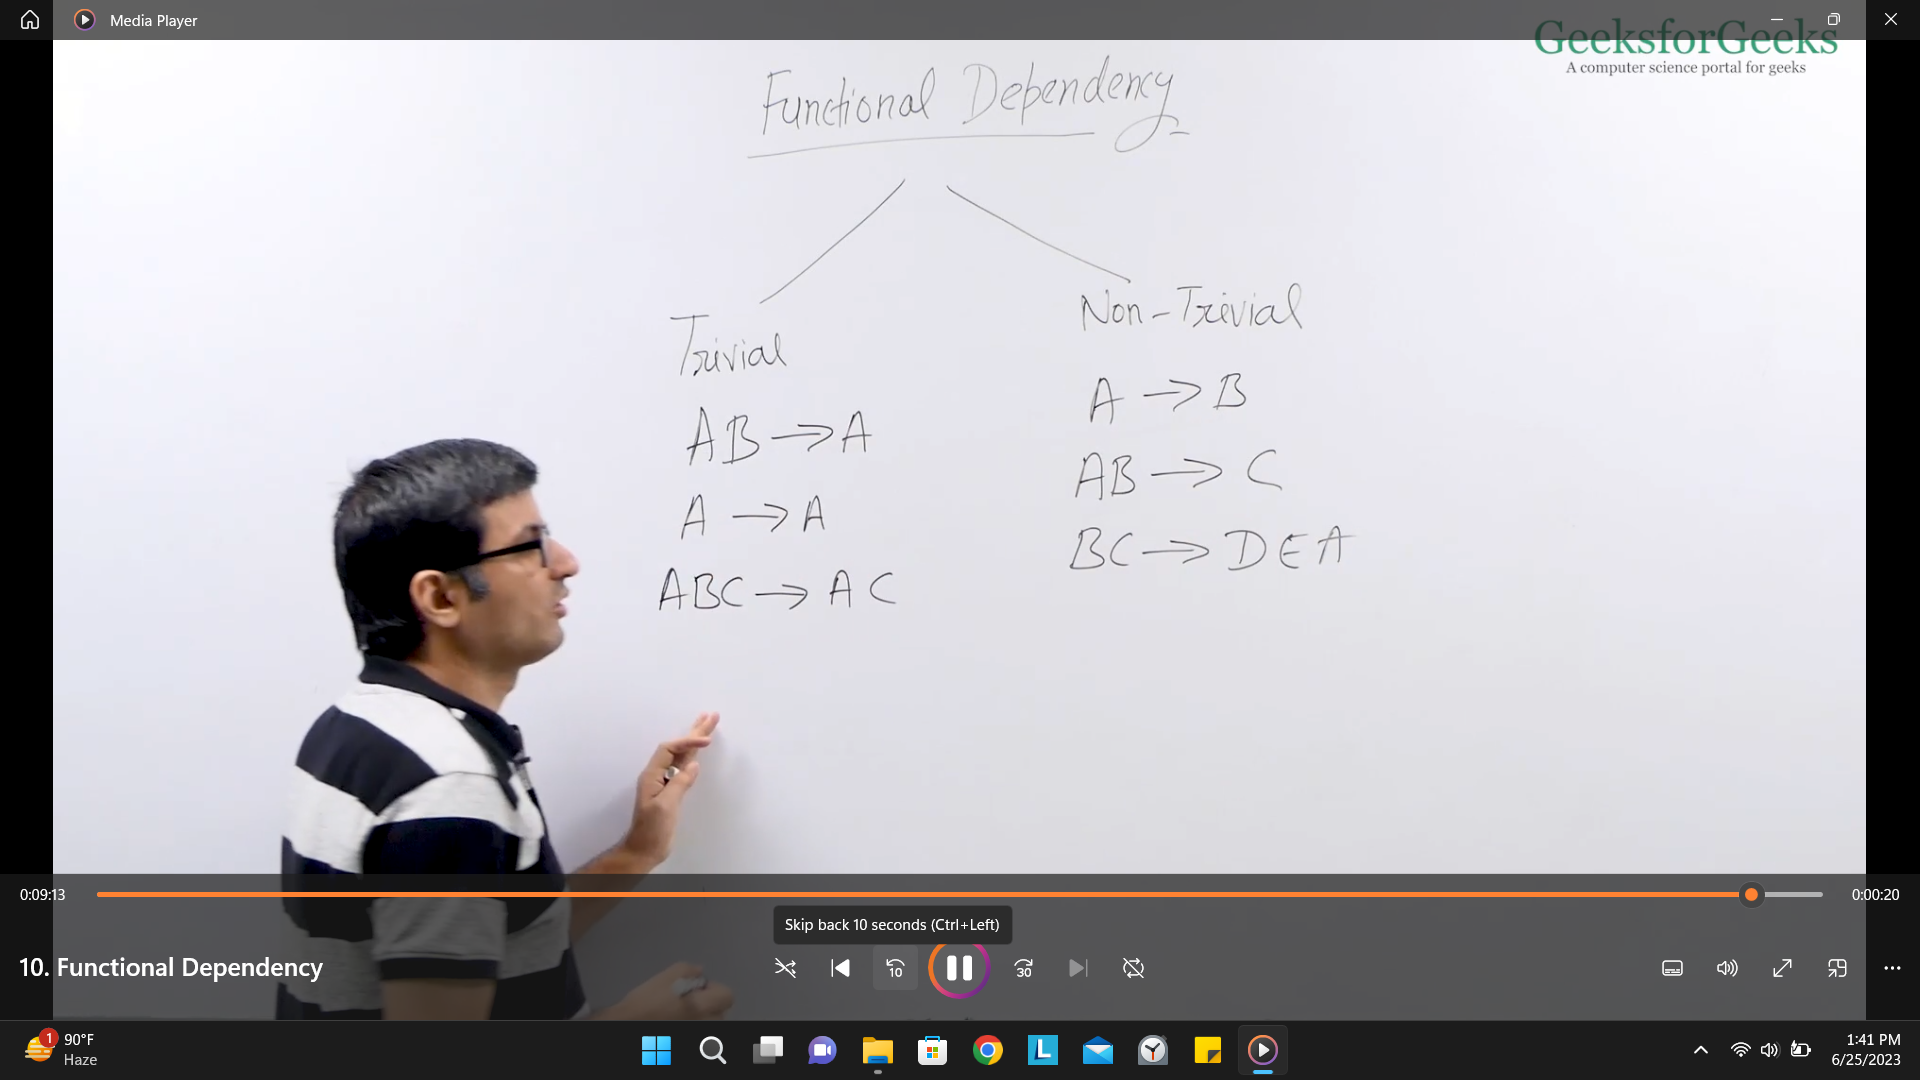 Media Player
GeeksforGeeks
A computer science portal for geeks
Functional Dependency
Trivial
Non-Trivial
AB → A
A → B
A → A
AB → C
ABC → AC
BC → DEA
0:09:13
0:00:20
Skip back 10 seconds (Ctrl+Left)
10. Functional Dependency
10
30
1
90°F
Haze
L
1:41 PM
6/25/2023